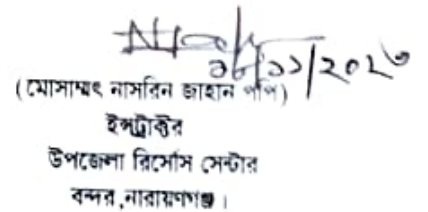 ১১/২০২৩
(মোসাম্মৎ নাসরিন জাহান পপি)
ইন্সট্রাক্টর
উপজেলা রিসোর্স সেন্টার
বন্দর,নারায়ণগঞ্জ।